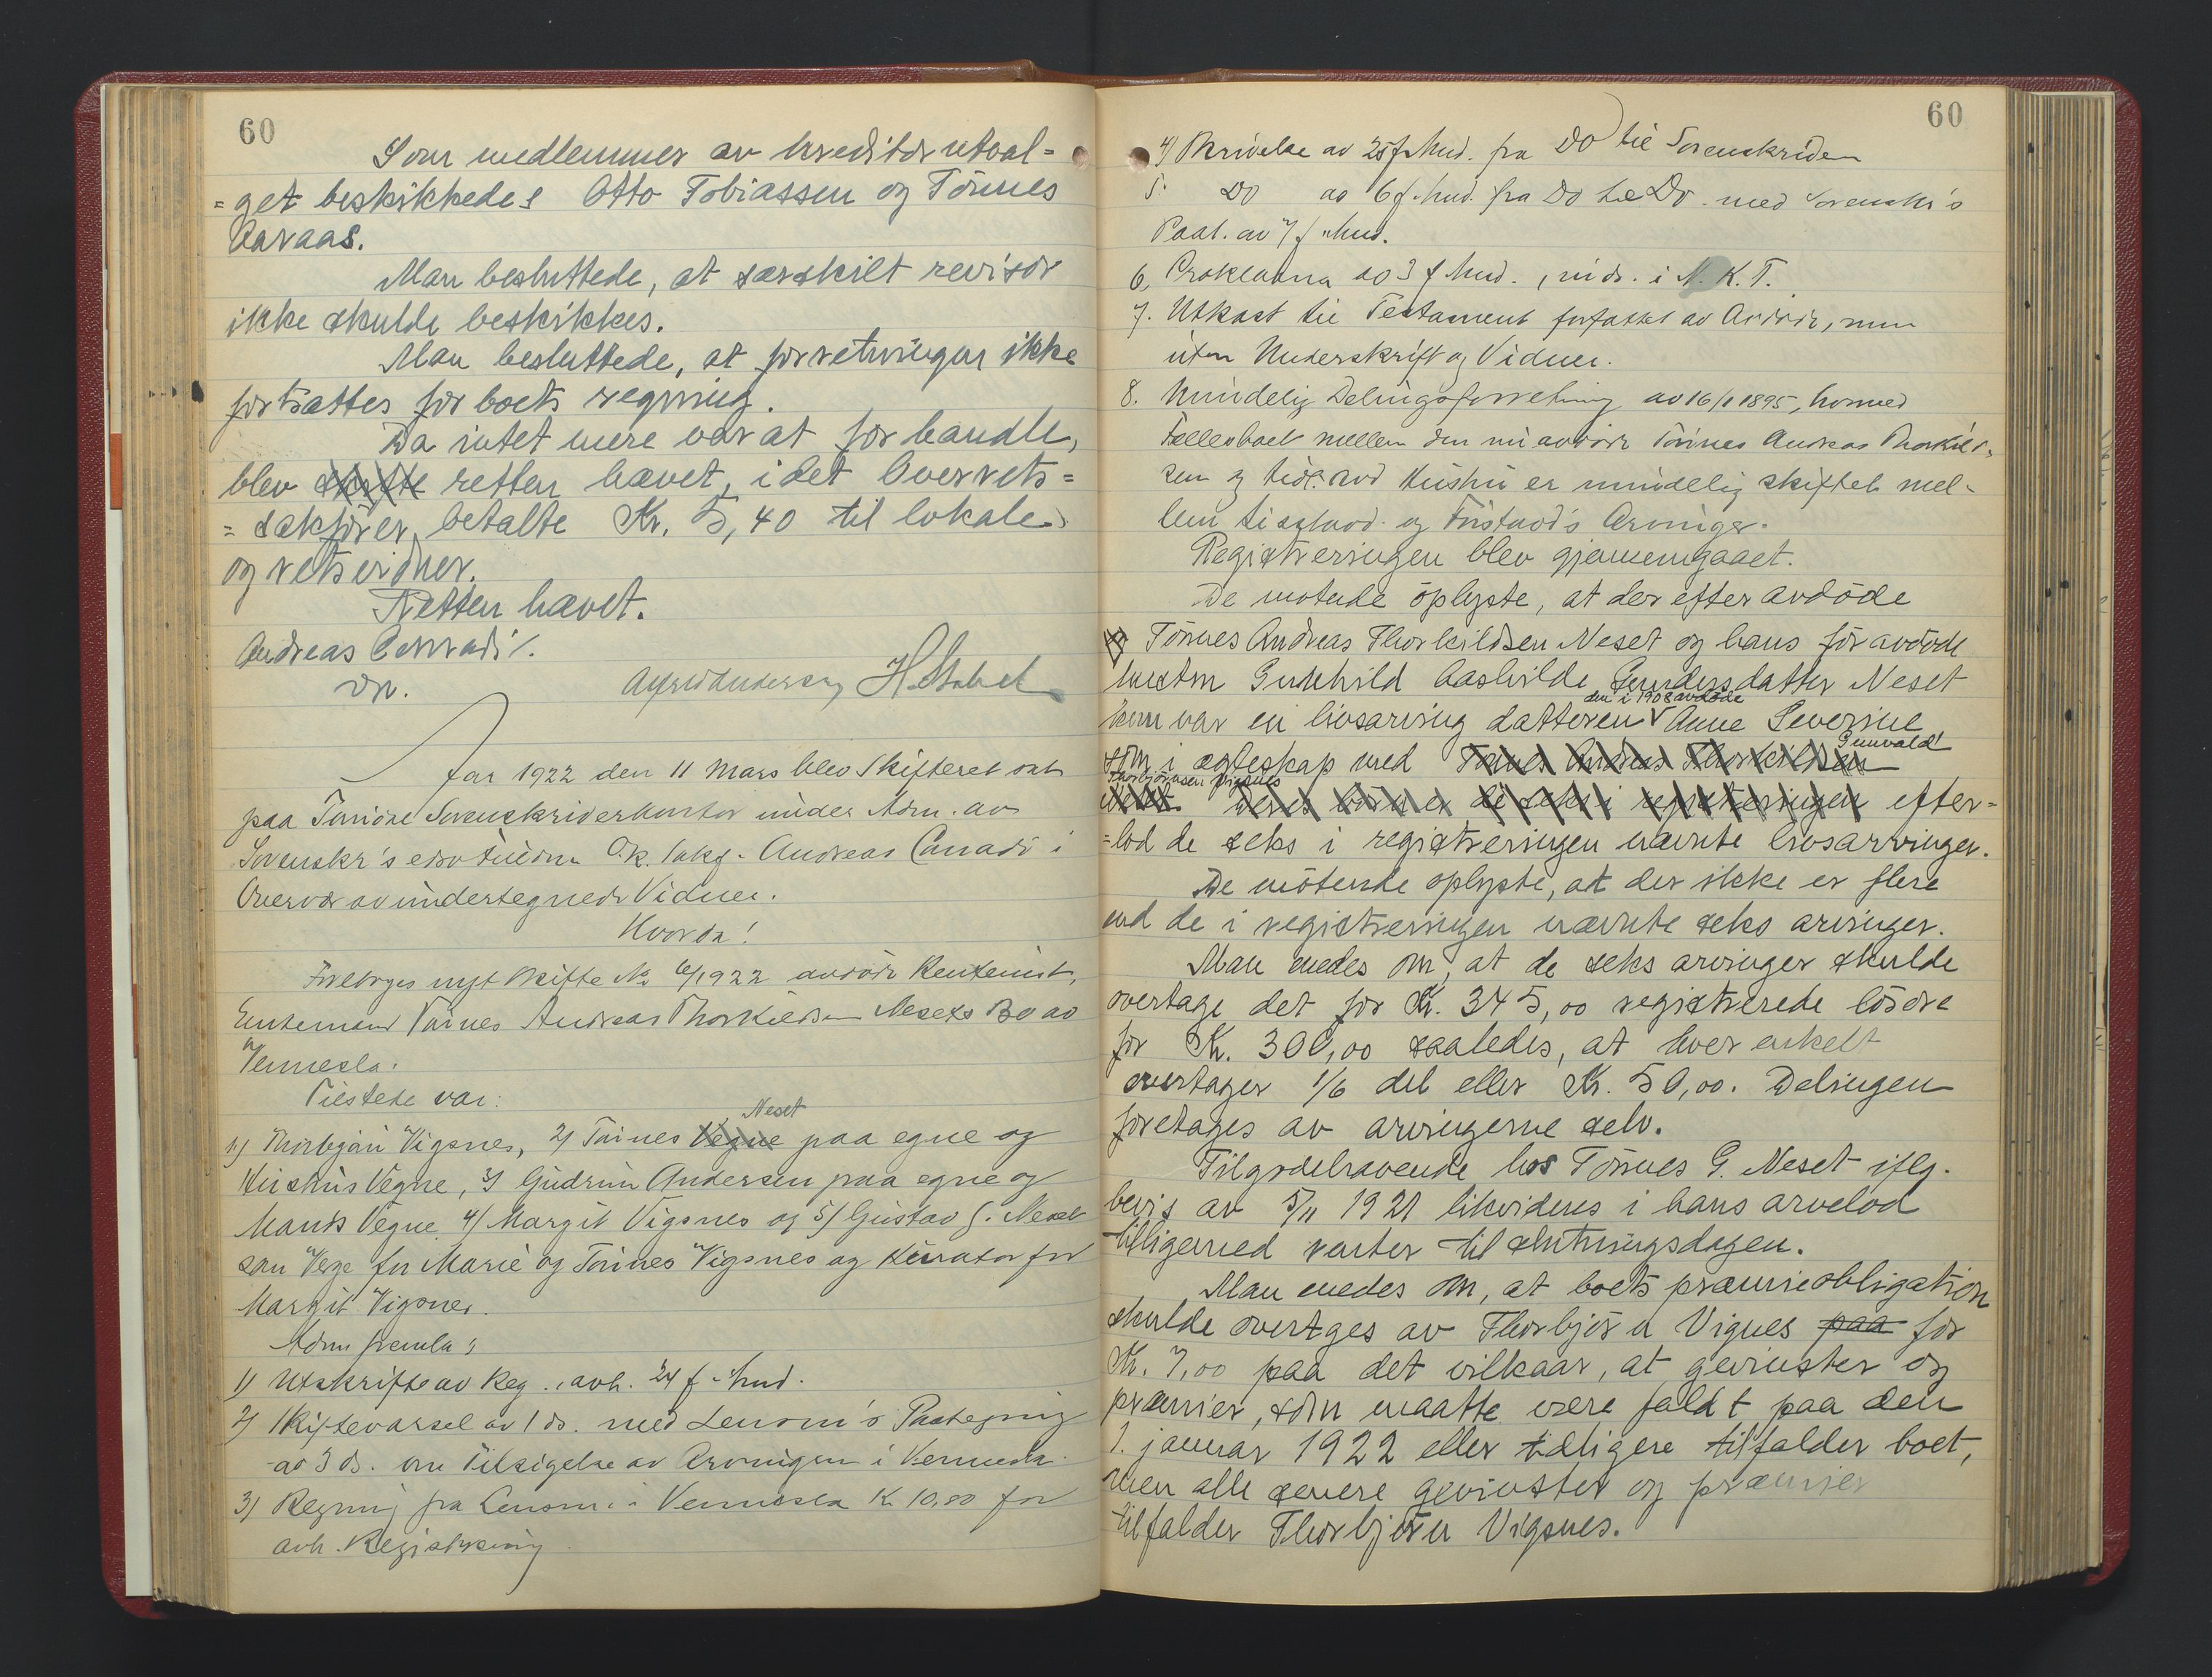 60
Som medlemmer av kreditorutval=
=get beskikkedes Otto Tobiassen og Tönnes
Aaraas.
Man besluttede, at særskilt revisor
ikke skulde beskikkes.
Man besluttede, at forretningen ikke
fortsættes for boets regning.
Da intet mere var at forhandle,
blev skifte retten hævet, idet Overrets=
=sakförer betalte Kr. 5,40 til lokale
og retsvidner.
Retten hævet.
Andreas Conradi
Alfred Andersen H. Stabel
Aar 1922 den 11 Mars blev Skifteret sat
paa Torridal Sorenskriverkontor under Adm. av
Sorenskr's edsv. fuldm. O.r. sakf. Andreas Conradi i
Overvær av undertegnede Vidner.
Hvorda!
Foretoges nyt Skifte No 6/1922 avdöde Rentenist,
Enkemand Tönnes Andreas Thorkildsen Nesets Bo av
Vennesla.
Tilstede var:
Neset
1) Thorbjörn Vigsnes, 2) Tönnes Vegne paa egne og
Hustrus Vegne, 3) Gudrun Andersen paa egne og
Mands Vegne, 4) Margit Vigsnes og 5) Gustav G. Neset
som Verge for Marie og Tönnes Vigsnes og Kurator for
Margit Vigsnes.
Adm fremla:
1) Utskrift av Reg., avh. 24 f. Md.
2) Skiftevarsel av 1 ds. med Lensm's Paategning
av 3 ds. om Tilsigelse av Arvingen i Vennesla.
3) Regning fra Lensm. i Vennesla Kr 10,80 for
avh. Registrering
60
4) Skrivelse av 25 f. Md. fra Do til Sorenskriven
5. Do av 6 f. Md. fra Do til Do. med Sorenskr's
Paat. av 7 f. Md.
6, Proklama av 3 f. Md., inds. i N.K.T.
7. Utkast til Testament forfattet av Avdöde, men
uten Underskrift og Vidner.
8. Mindelig Delingsforretning av 16/1 1895, hvorved
Fællesboet mellem den nu avdöde Tönnes Andreas Thorkild-
sen og tidl. avd Hustru er mindelig skiftet mel-
lem og Förstavd's Arvinger.
Registreringen blev gjennemgaaet.
De mötende oplyste, at der efter avdöde
Tönnes Andreas Thorkildsen Neset og hans för avdöde
hustru Gunhild Aashilde Gundersdatter Neset
den i 1908 avdöde
kun var en livsarving datteren Anne Severine
Gunvald
som i egteskap med Tönnes Andreas Thorkildsen
Thorbjörnsen Vigsnes
Neset. Deres börn er de seks i registreringen efter=
=lod de seks i registreringen nævnte livsarvinger.
De mötende oplyste, at der ikke er flere
end de i registreringen nævnte seks arvinger.
Man enedes om, at de seks arvinger skulde
overtage det for Kr. 345,00 registrerede lösöre
for Kr. 300,00 saaledes, at hver enkelt
overtager 1/6 del eller Kr. 50,00. Delingen
foretages av arvingerne selv.
Tilgodehavende hos Tönnes G. Neset iflg.
bevis av 5/11 1921 likvideres i hans arvelod
tilligemed renter til slutningsdagen.
Man enedes om, at boets præmieobligation
skulde overtges av Thorbjörn Vignes paa for
Kr. 7,00 paa det vilkaar, at gevinster og
præmier, som maatte være faldt paa den
1. januar 1922 eller tidligere tilfalder boet,
men alle senere gevinster og præmier
tilfalder Thorbjörn Vigsnes.